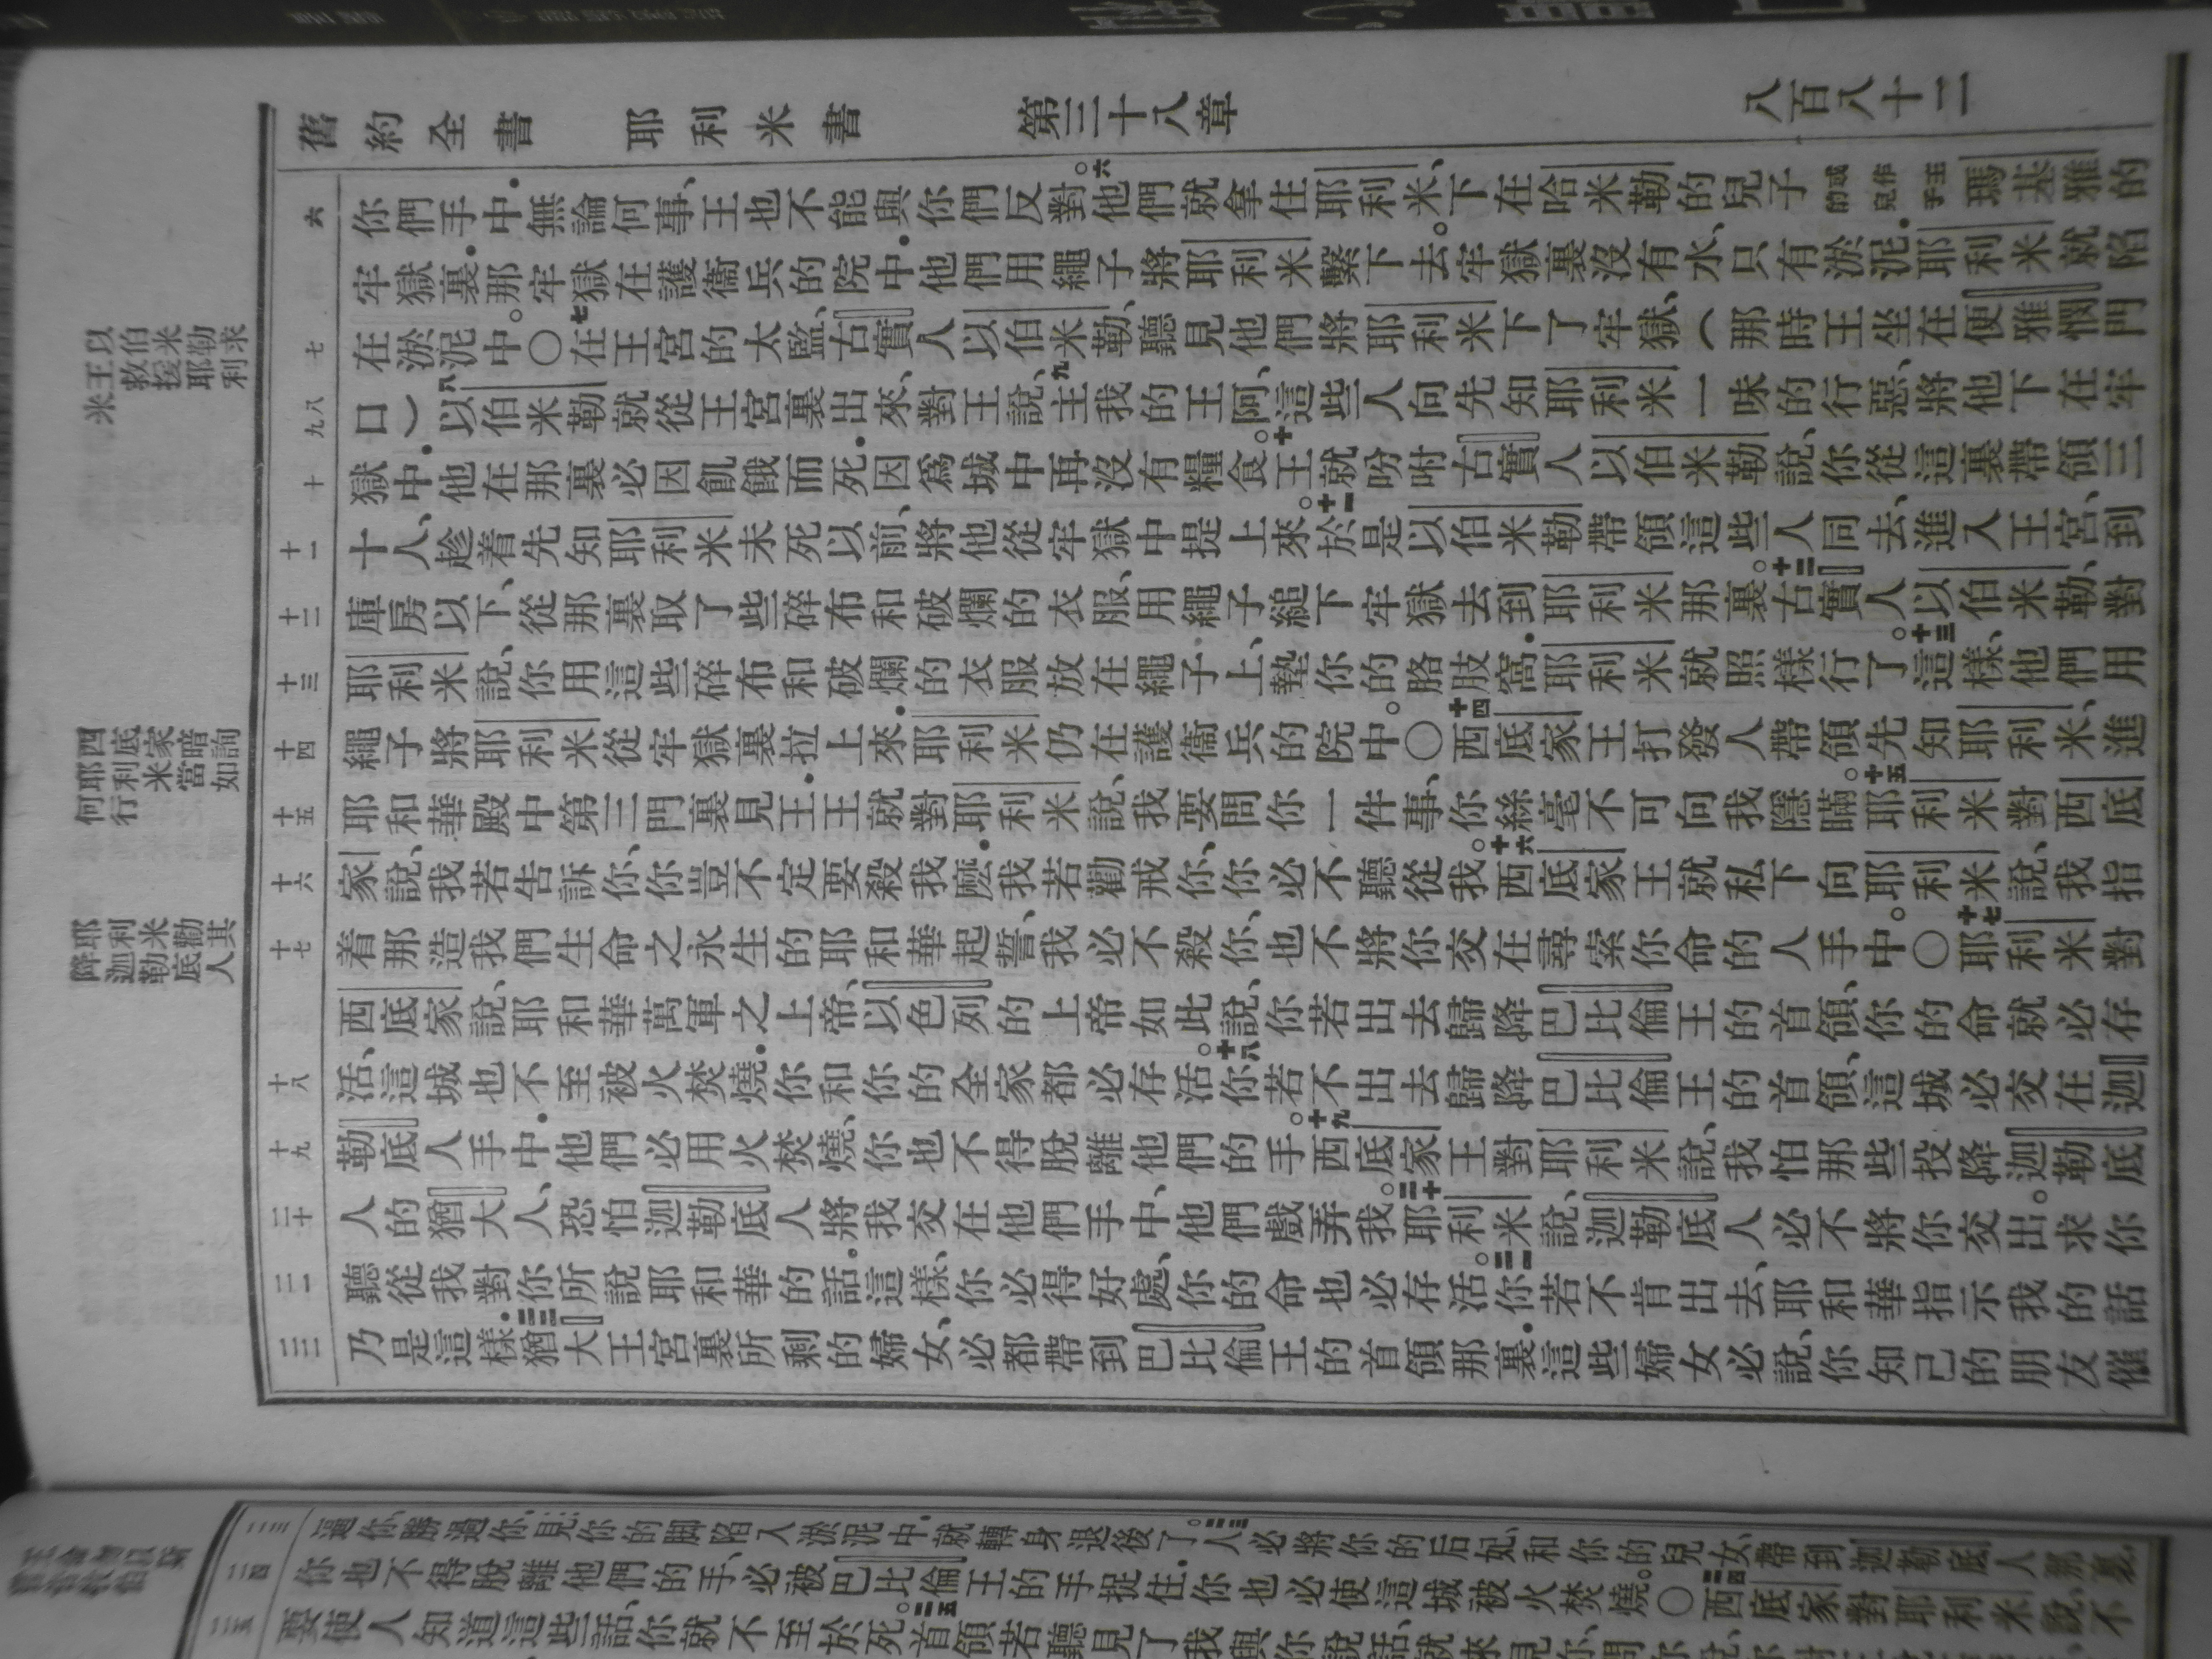 舊約全書　耶利米書　第三十八章　八百八十二
你們手中．無論何事、王也不能與你們反對。六他們就拿住耶利米、下在哈米勒的兒子或作王子的兒瑪基雅的
牢獄裏．那牢獄在護衞兵的院中．他們用繩子將耶利米繫下去。牢獄裏沒有水、只有淤泥．耶利米就陷
在淤泥中。〇七在王宮的太監、古實人以伯米勒、聽見他們將耶利米下了牢獄、（那時王坐在便雅憫門
口）八以伯米勒就從王宮裏出來、對王說、九主我的王阿、這些人向先知耶利米一味的行惡、將他下在牢
獄中．他在那裏必因飢餓而死．因爲城中再沒有糧食。十王就吩咐古實人以伯米勒說、你從這裏帶領三
十人、趁着先知耶利米未死以前、將他從牢獄中提上來。十一於是以伯米勒帶領這些人同去、進入王宮、到
庫房以下、從那裏取了些碎布和破爛的衣服、用繩子縋下牢獄去到耶利米那裏。十二古實人以伯米勒、對
耶利米說、你用這些碎布和破爛的衣服放在繩子上、墊你的胳肢窩．耶利米就照樣行了。十三這樣、他們用
繩子將耶利米從牢獄裏拉上來．耶利米仍在護衞兵的院中。〇十四西底家王打發人帶領先知耶利米、進
耶和華殿中第三門裏見王．王就對耶利米說、我要問你一件事、你絲毫不可向我隱瞞。十五耶利米對西底
家說、我若告訴你、你豈不定要殺我麽．我若勸戒你、你必不聽從我。十六西底家王就私下向耶利米說、我指
着那造我們生命之永生的耶和華起誓、我必不殺你、也不將你交在尋索你命的人手中。〇十七耶利米對
西底家說、耶和華萬軍之上帝、以色列的上帝如此說、你若出去歸降巴比倫王的首領、你的命就必存
活、這城也不至被火焚燒．你和你的全家都必存活。十八你若不出去歸降巴比倫王的首領、這城必交在迦
勒底人手中．他們必用火焚燒、你也不得脫離他們的手。十九西底家王對耶利米說、我怕那些投降迦勒底
人的猶大人、恐怕迦勒底人將我交在他們手中、他們戲弄我。二十耶利米說、迦勒底人必不將你交出。求你
聽從我對你所說耶和華的話．這樣、你必得好處、你的命也必存活。二一你若不肯出去、耶和華指示我的話
乃是這樣．二二猶大王宮裏所剩的婦女、必都帶到巴比倫王的首領那裏．這些婦女必說、你知己的朋友催
六
七
八
九
十
十一
十二
十三
十四
十五
十六
十七
十八
十九
二十
二一
二二
以伯米勒求王救援耶利米
西底家暗詢耶利米當如何行
耶利米勸其降迦勒底人
逼你勝過你．見你的腳陷入淤泥中．就轉身退後了。二三人必將你的后妃和你的兒女、帶到迦勒底人那裏．
你也不得脫離他們的手、必被巴比倫王的手捉住．你也必使這城被火焚燒。〇二四西底家對耶利米說、不
要使人知道這些話、你就不至於死。二五首領若聽見了我與你說話、就來見你、問你說、
二三
二四
二五